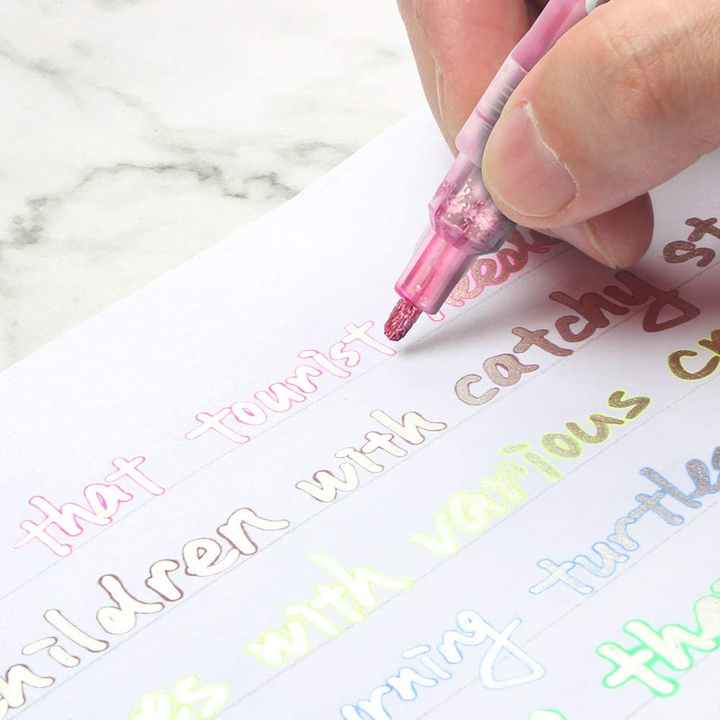 that tourist need
children with catchy st
es with various cr
urning turtles
tha